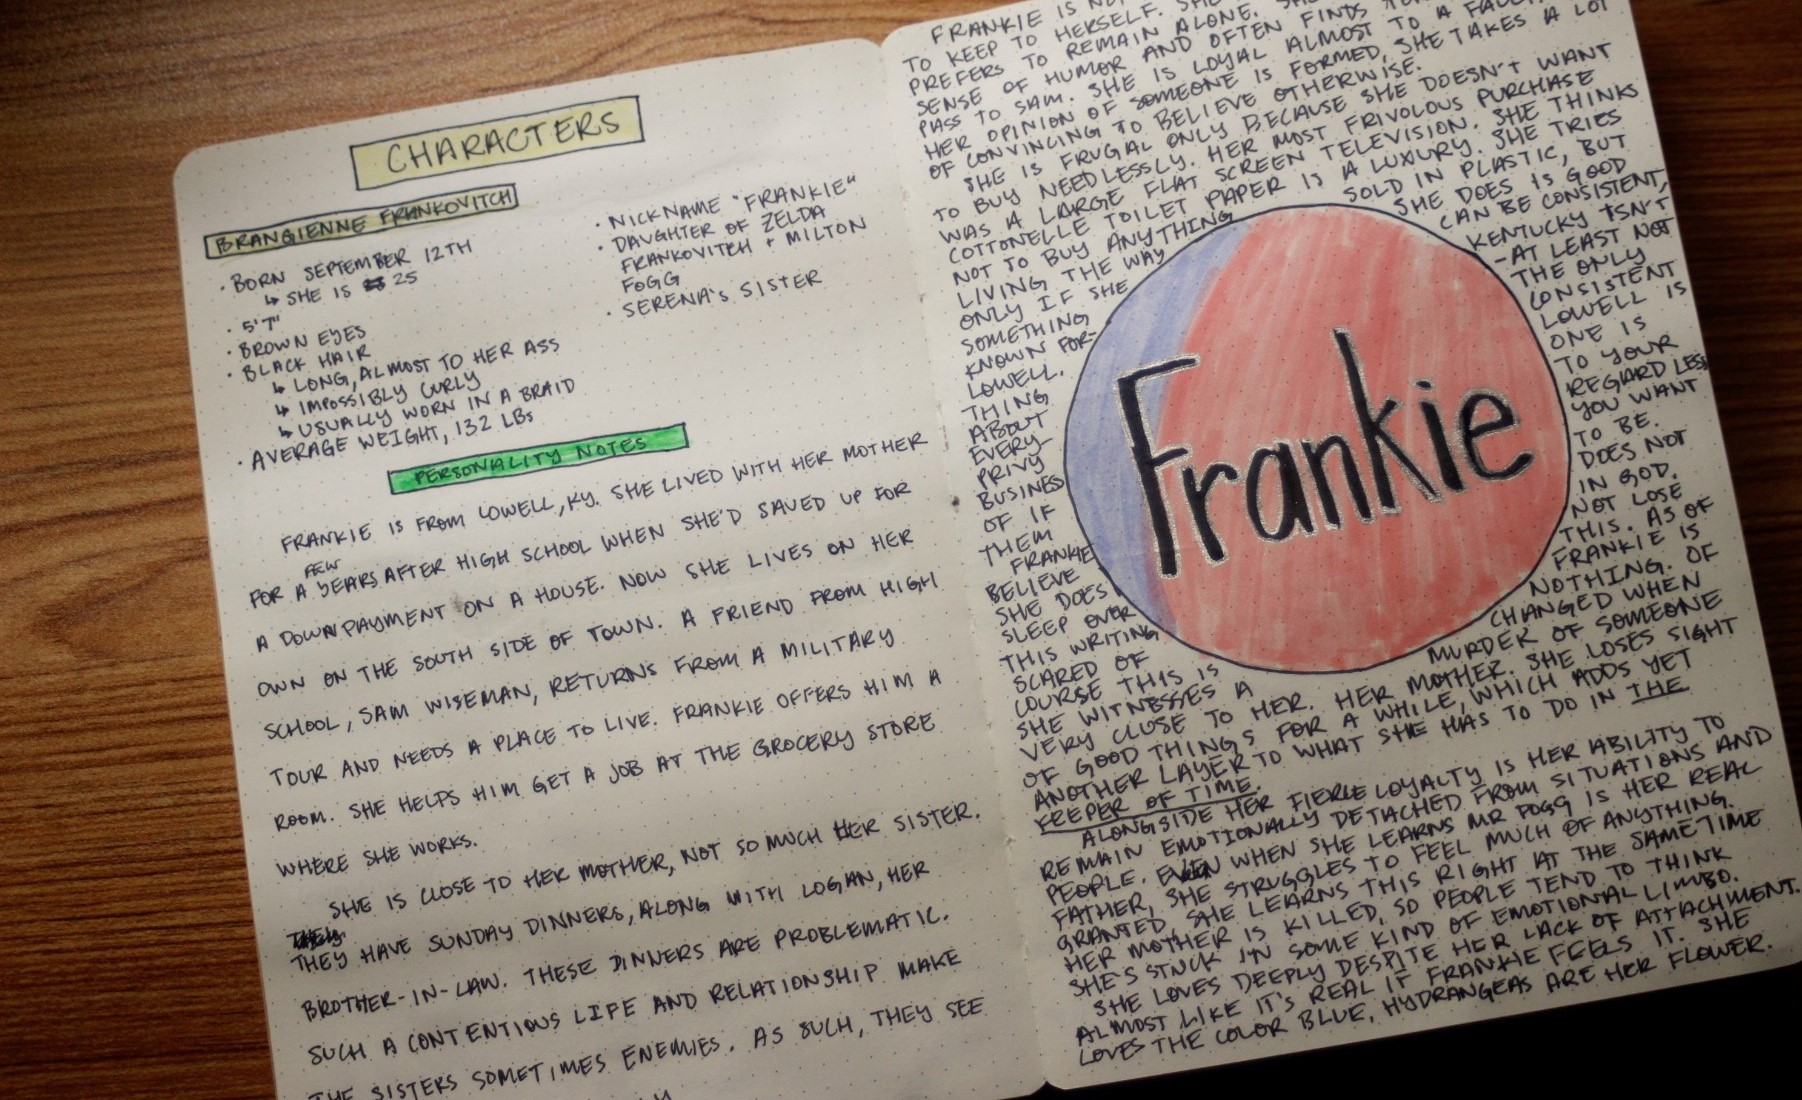 CHARACTERS
BRANGIENNE FRANKOVITCH
· BORN SEPTEMBER 12TH
↳ SHE IS 25
· 5'7"
· BROWN EYES
· BLACK HAIR
↳ LONG, ALMOST TO HER ASS
↳ IMPOSSIBLY CURLY
↳ USUALLY WORN IN A BRAID
· AVERAGE WEIGHT, 132 LBs
· NICKNAME "FRANKIE"
· DAUGHTER OF ZELDA
FRANKOVITCH + MILTON
FOGG
· SERENA'S SISTER
PERSONALITY NOTES
FRANKIE IS FROM LOWELL, KY. SHE LIVED WITH HER MOTHER
FOR A FEW YEARS AFTER HIGH SCHOOL WHEN SHE'D SAVED UP FOR
A DOWNPAYMENT ON A HOUSE. NOW SHE LIVES ON HER
OWN ON THE SOUTH SIDE OF TOWN. A FRIEND FROM HIGH
SCHOOL, SAM WISEMAN, RETURNS FROM A MILITARY
TOUR AND NEEDS A PLACE TO LIVE. FRANKIE OFFERS HIM A
ROOM. SHE HELPS HIM GET A JOB AT THE GROCERY STORE
WHERE SHE WORKS.
SHE IS CLOSE TO HER MOTHER, NOT SO MUCH HER SISTER.
THEY HAVE SUNDAY DINNERS, ALONG WITH LOGAN, HER
BROTHER-IN-LAW. THESE DINNERS ARE PROBLEMATIC.
SUCH A CONTENTIOUS LIFE AND RELATIONSHIP MAKE
THE SISTERS SOMETIMES ENEMIES. AS SUCH, THEY SEE
FRANKIE IS
TO KEEP TO HERSELF. SHE
PREFERS TO REMAIN ALONE.
SENSE OF HUMOR AND OFTEN FINDS
PASS TO SAM. SHE IS LOYAL ALMOST TO A FAULT.
HER OPINION OF SOMEONE IS FORMED, SHE TAKES A LOT
OF CONVINCING TO BELIEVE OTHERWISE.
SHE IS FRUGAL ONLY BECAUSE SHE DOESN'T WANT
TO BUY NEEDLESSLY. HER MOST FRIVOLOUS PURCHASE
WAS A LARGE FLAT SCREEN TELEVISION. SHE THINKS
COTTONELLE TOILET PAPER IS A LUXURY. SHE TRIES
NOT TO BUY ANYTHING SOLD IN PLASTIC, BUT
LIVING THE WAY SHE DOES IS GOOD
ONLY IF SHE CAN BE CONSISTENT,
SOMETHING KENTUCKY ISN'T
KNOWN FOR- -AT LEAST NOT
LOWELL. THE ONLY
THING CONSISTENT
ABOUT LOWELL IS
EVERY- ONE IS
PRIVY TO YOUR
BUSINESS REGARDLESS
OF IF YOU WANT
THEM TO BE.
FRANKIE DOES NOT
BELIEVE IN GOD.
SHE DOES NOT LOSE
SLEEP OVER THIS. AS OF
THIS WRITING FRANKIE IS
SCARED OF NOTHING. OF
COURSE THIS IS CHANGED WHEN
SHE WITNESSES A MURDER OF SOMEONE
VERY CLOSE TO HER. HER MOTHER. SHE LOSES SIGHT
OF GOOD THINGS FOR A WHILE, WHICH ADDS YET
ANOTHER LAYER TO WHAT SHE HAS TO DO IN THE
KEEPER OF TIME.
ALONGSIDE HER FIERCE LOYALTY IS HER ABILITY TO
REMAIN EMOTIONALLY DETACHED FROM SITUATIONS AND
PEOPLE. EVEN WHEN SHE LEARNS MR FOGG IS HER REAL
FATHER, SHE STRUGGLES TO FEEL MUCH OF ANYTHING.
GRANTED, SHE LEARNS THIS RIGHT AT THE SAME TIME
HER MOTHER IS KILLED, SO PEOPLE TEND TO THINK
SHE'S STUCK IN SOME KIND OF EMOTIONAL LIMBO.
SHE LOVES DEEPLY DESPITE HER LACK OF ATTACHMENT.
ALMOST LIKE IT'S REAL IF FRANKIE FEELS IT. SHE
LOVES THE COLOR BLUE, HYDRANGEAS ARE HER FLOWER.
Frankie